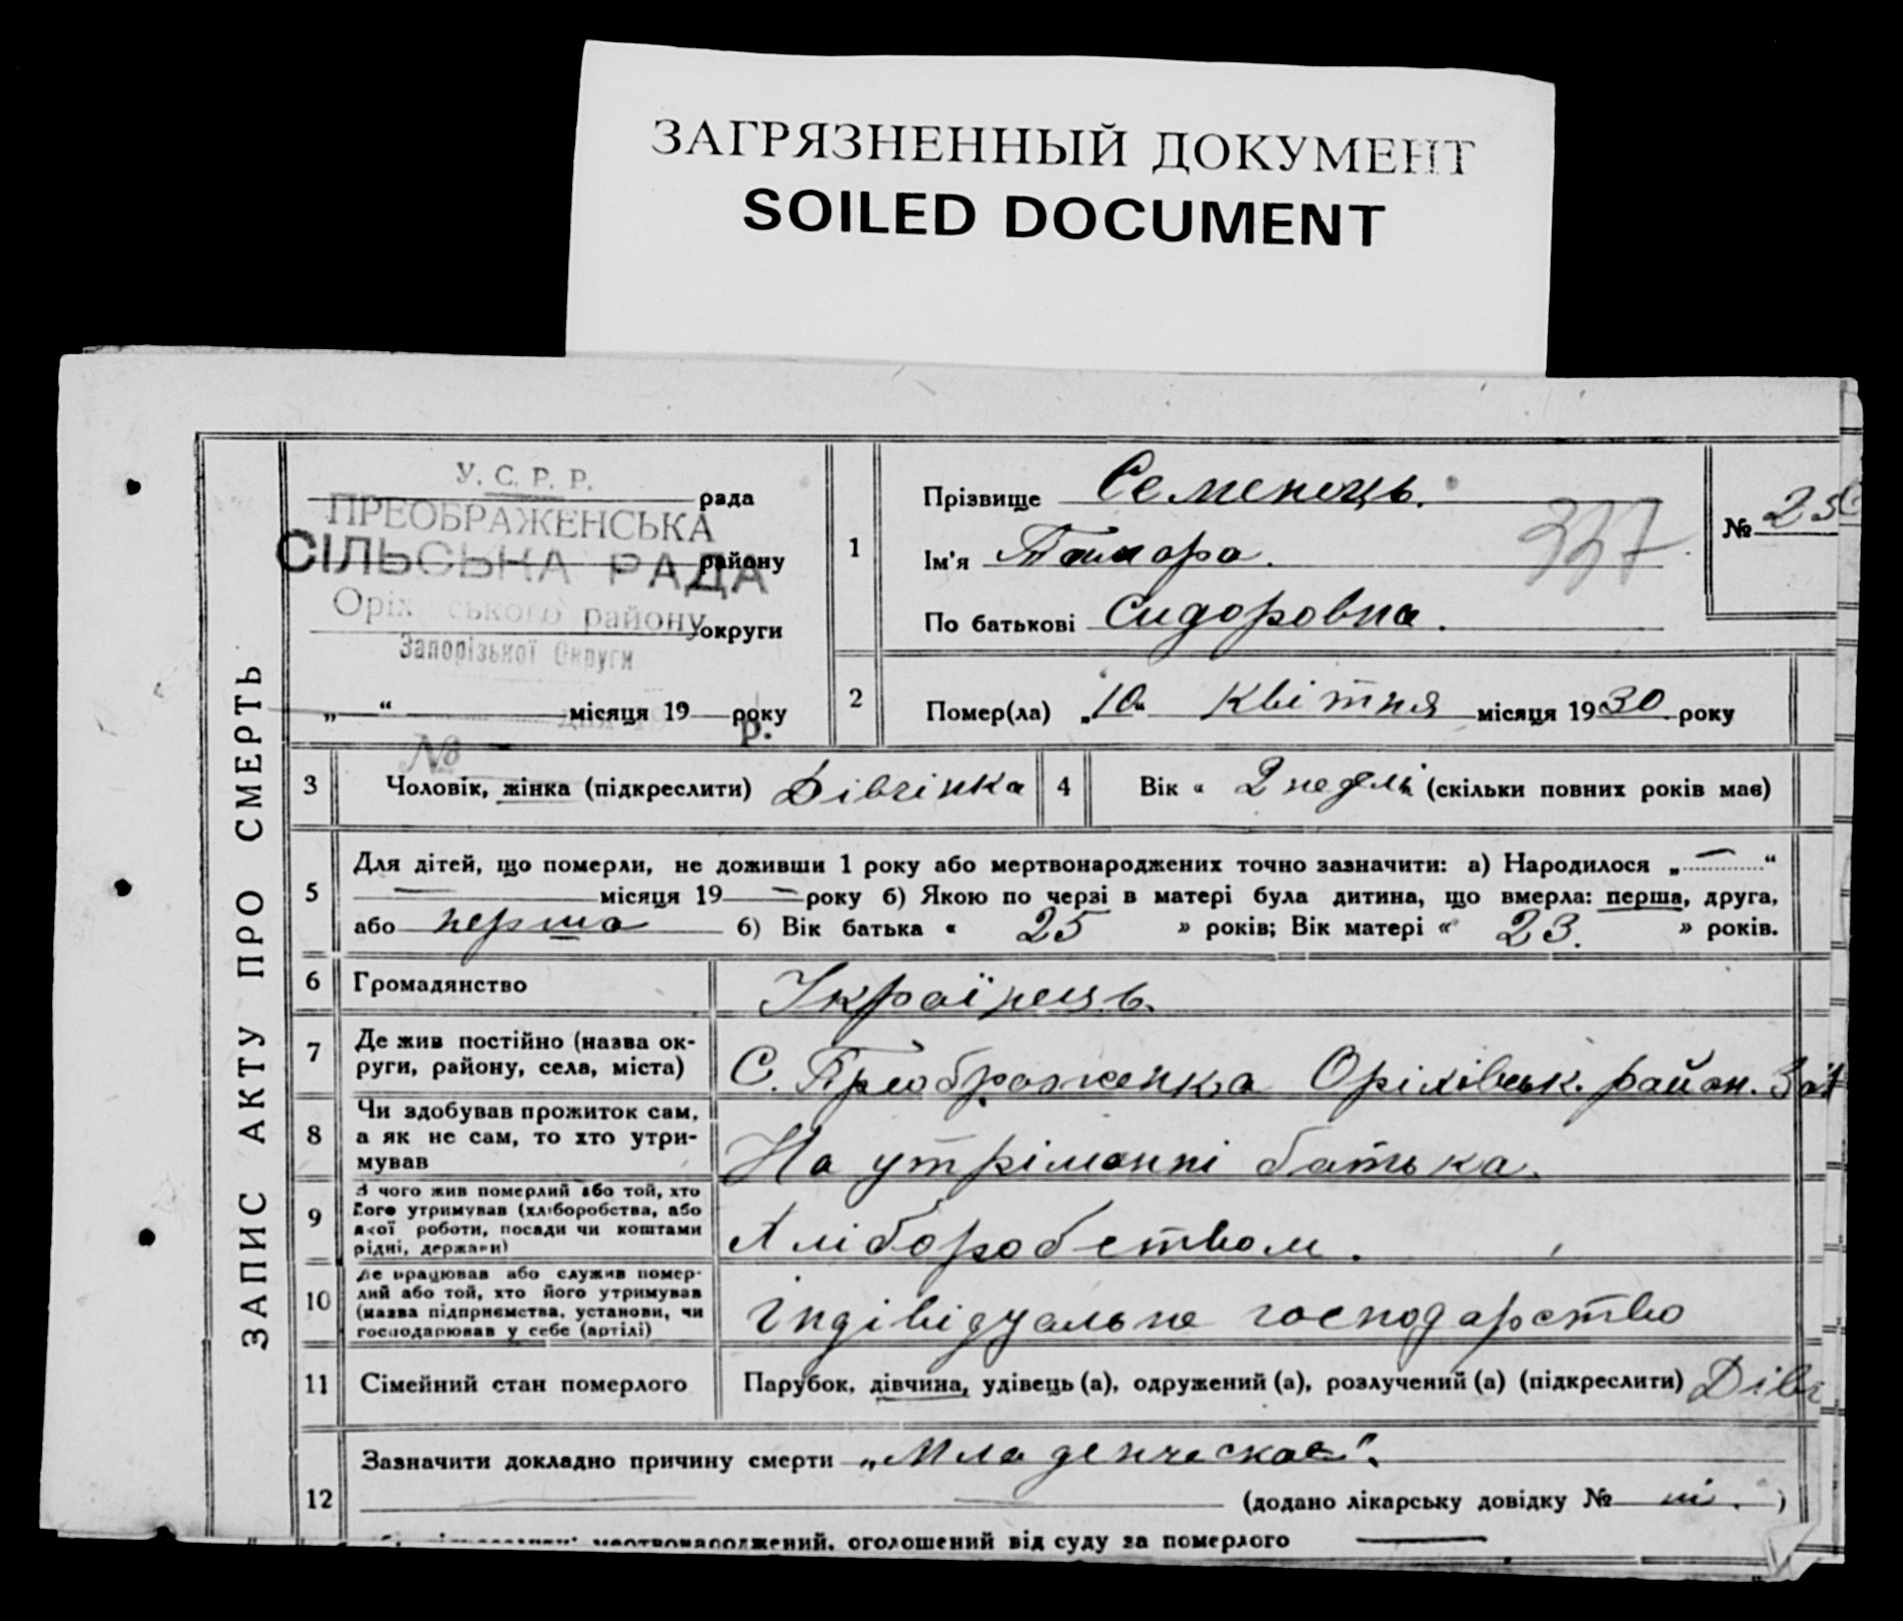 ЗАГРЯЗНЕННЫЙ ДОКУМЕНТ
SOILED DOCUMENT
ЗАПИС АКТУ ПРО СМЕРТЬ
У. С. Р. Р.
рада
ПРЕОБРАЖЕНСЬКА
СІЛЬСЬКА РАДА
району
ського району
округи
Запорізької Округи
„ “ місяця 19 року
р.
№
1
Прізвище Семенець.
Ім'я Тамара.
По батькові Сидоровна.
337
№ 25
2
Помер(ла) „10“ Квітня місяця 1930 року
3 Чоловік, жінка (підкреслити) Дівчінка
4 Вік « 2 неделі (скільки повних років має)
5
Для дітей, що померли, не доживши 1 року або мертвонароджених точно зазначити: а) Народилося „ — “
— місяця 19 — року б) Якою по черзі в матері була дитина, що вмерла: перша, друга,
або перша б) Вік батька « 25 » років; Вік матері « 23. » років.
6 Громадянство Українець.
7 Де жив постійно (назва ок-
руги, району, села, міста)
С. Преображенка Оріхівськ. район. Зап
8
Чи здобував прожиток сам,
а як не сам, то хто утри-
мував
На утріманні батька.
9
З чого жив померлий або той, хто
його утримував (хліборобства, або
якої роботи, посади чи коштами
рідні, держави)
Хліборобством.
10
Де працював або служив помер-
лий або той, хто його утримував
(назва підприємства, установи, чи
господарював у себе (артілі)
Індівідуальне господарство
11 Сімейний стан померлого Парубок, дівчина, удівець (а), одружений (а), розлучений (а) (підкреслити) Дівч
12
Зазначити докладно причину смерти „Младенческая“.
(додано лікарську довідку № ні. )
мертвонароджений, оголошений від суду за померлого —